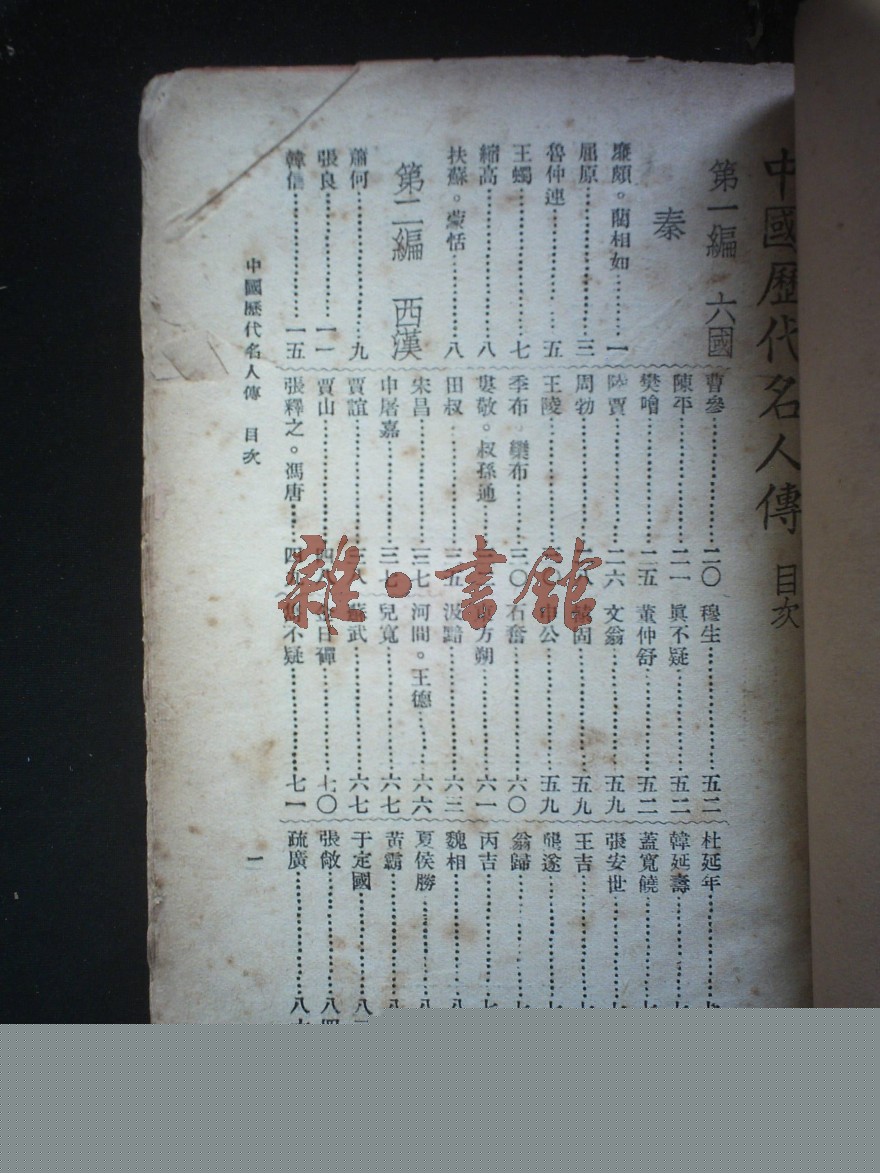 中國歷代名人傳 目次
第一編 六國
秦
廉頗。藺相如…………一
屈原…………三
魯仲連…………五
王蠋…………七
縮高…………八
扶蘇。蒙恬…………八
第二編 西漢
蕭何…………九
張良…………一一
韓信…………一五
曹參…………二〇
陳平…………二一
樊噲…………二五
陸賈…………二六
周勃…………
王陵…………
季布 欒布…………三〇
婁敬。叔孫通…………
田叔…………三五
宋昌…………三七
申屠嘉…………三七
賈誼…………三八
賈山…………四
張釋之。馮唐…………四
穆生…………五二
眞不疑…………五二
董仲舒…………五二
文翁…………五九
固…………五九
申公…………五九
石奮…………六〇
方朔…………六一
汲黯…………六三
河間。王德…………六六
兒寬…………六七
蘇武…………六七
金日磾…………七〇
不疑…………七一
杜延年…………
韓延壽…………
蓋寬饒…………
張安世…………
王吉…………
龔遂…………
翁歸…………
丙吉…………
魏相…………
夏侯勝…………
黃霸…………
于定國…………
張敞…………八四
疏廣…………八
中國歷代名人傳 目次
一
雜·書館